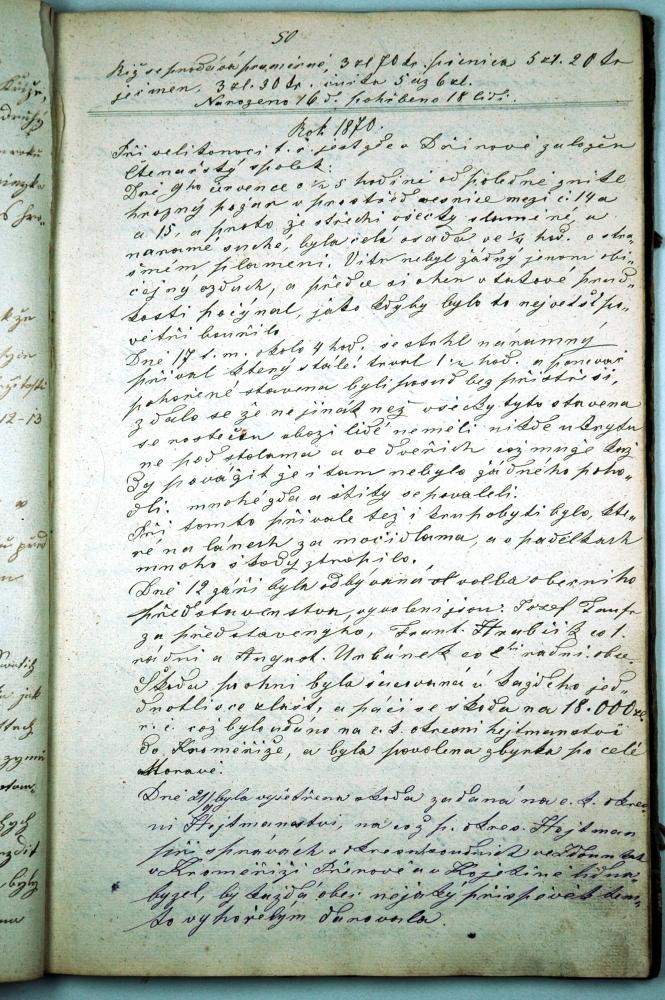 50
Rýž se prodává průměrně, 3 zl 70 kr. pšenica 5 zl. 20 kr
ječmen, 3 zl. 30 kr., 5 až 6 zl.
Narozeno 16 d. pohřbeno 18 lidí.
Rok 1870.
Při velikonoci t. r. jest zde v Dřínově založen
čtenářský spolek.
Dne 9ho července o ½ 5 hodině odpoledne zničil
hrozný požar v prostřed vesnice mezi č 14 a
a 15, a proto že střechi všecky slaměné, a
naramě suché, byla celá osada ve ¼ hod. o stra-
šném plameni. Vitr nebyl žádný jenom obi-
čejný vzduch, a předce si oheň v takové prud-
kosti počýnal, jako kdyby bylo to největší po-
větří bouřilo.
Dne 17 t. m. okolo 4 hod. se strhl náramný
příval který stále trval 1 ½ hod. a poněvač
pohořené stavena byli posud bez přistřeší,
zdalo se že nejinák než všecky tyto stavena
se rostečou ubozí lidé neměli nikde ukrytu
ne pod stolama a ve dveřích což muže kaž
dy považit je i tam nebylo žádného poho-
dlí. mnohé zďa a štity se povaleli.
Při tomto přívale tež i krupobytí bylo, kte-
ré na lánech za močidlama, a v padělkach
mnoho škody ztropilo.
Dne 12 záři byla odbyvaná volba obecniho
představenstva, vyvoleni jsou: Jozef
za představenyho, Frant. Hrabčik co 1.
rádni a August. Urbánek co 2hi radni obce.
Škoda po ohni byla šacovaná u kazdeho jed-
dnotlivce zlašť, a páči se škoda na 18.000 zl
r. č. což bylo udáno na c. k. okresni hejtmanství
do Kroměříže, a byla povolena zbyrka po celé
Moravě.
Dne byla vyšetřena škoda zadaná na c. k. okres
ni Hejtmanstvi, na což p. okres. Hejtman
při spravách v okresnich ve Zdounkach
v Kroměřiži Přerově a v Kojetině
byzel, by kazdá obec nejaky přispěvek tem-
to vyhořelym darovala.